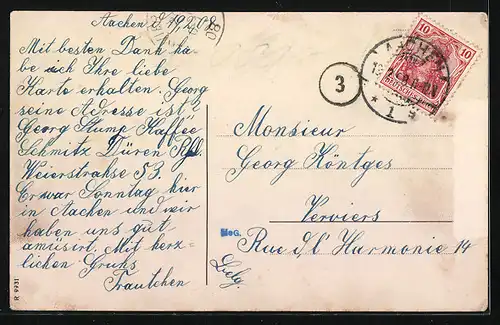 Aachen d. 19.2.08.
Mit besten Dank ha-
be ich Ihre liebe
Karte erhalten. Georg
seine Adresse ist
Georg Stump Kaffee
Schmitz Düren Rhl.
Weierstrahse 53.
Er war Sonntag hier
in Aachen und wir
haben uns gut
amüsirt. Mit herz-
lichen Gruhs
Trautchen
10 10
AACHEN
1
3
Monsieur
Georg Köntges
Verviers
Rue d l' Harmonie 14
Belg.